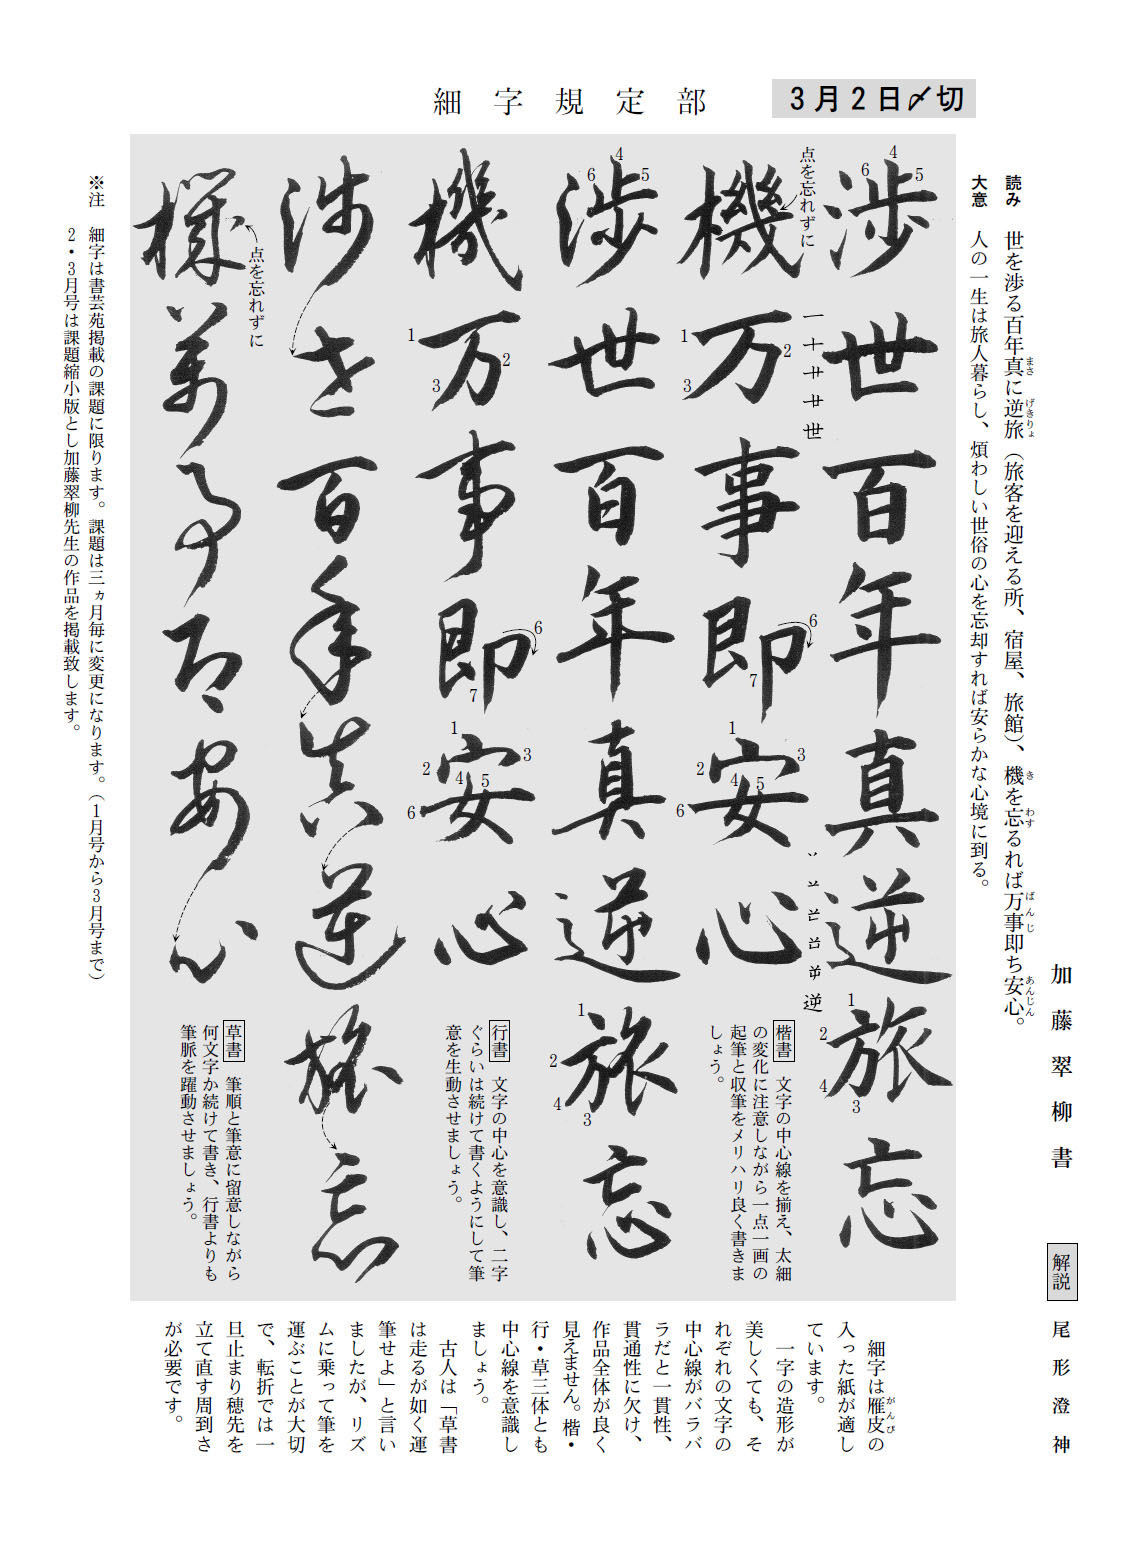 細字規定部
3月2日〆切
加藤翠柳書
解説 尾形澄神
読み 世を渉る百年真に逆旅(旅客を迎える所、宿屋、旅館)、機を忘るれば万事即ち安心。
まさ
げきりょ
き
わす
ばんじ
あんじん
大意 人の一生は旅人暮らし、煩わしい世俗の心を忘却すれば安らかな心境に到る。
渉世百年真逆旅忘
4
5
6
1
2
3
4
一十廾廿世
丷䒑逆
機万事即安心
点を忘れずに
1
2
3
6
7
1
2
3
4
5
6
楷書 文字の中心線を揃え、太細
の変化に注意しながら一点一画の
起筆と収筆をメリハリ良く書きま
しょう。
渉世百年真逆旅忘
4
5
6
1
2
3
4
機万事即安心
1
2
3
6
7
1
2
3
4
5
6
行書 文字の中心を意識し、二字
ぐらいは続けて書くようにして筆
意を生動させましょう。
渉世百年真逆旅忘
機萬事即安心
点を忘れずに
草書 筆順と筆意に留意しながら
何文字か続けて書き、行書よりも
筆脈を躍動させましょう。
※注 細字は書芸苑掲載の課題に限ります。課題は三ヵ月毎に変更になります。(1月号から3月号まで)
2・3月号は課題縮小版とし加藤翠柳先生の作品を掲載致します。
細字は雁皮の
がんぴ
入った紙が適し
ています。
一字の造形が
美しくても、そ
れぞれの文字の
中心線がバラバ
ラだと一貫性、
貫通性に欠け、
作品全体が良く
見えません。楷・
行・草三体とも
中心線を意識し
ましょう。
古人は「草書
は走るが如く運
筆せよ」と言い
ましたが、リズ
ムに乗って筆を
運ぶことが大切
で、転折では一
旦止まり穂先を
立て直す周到さ
が必要です。